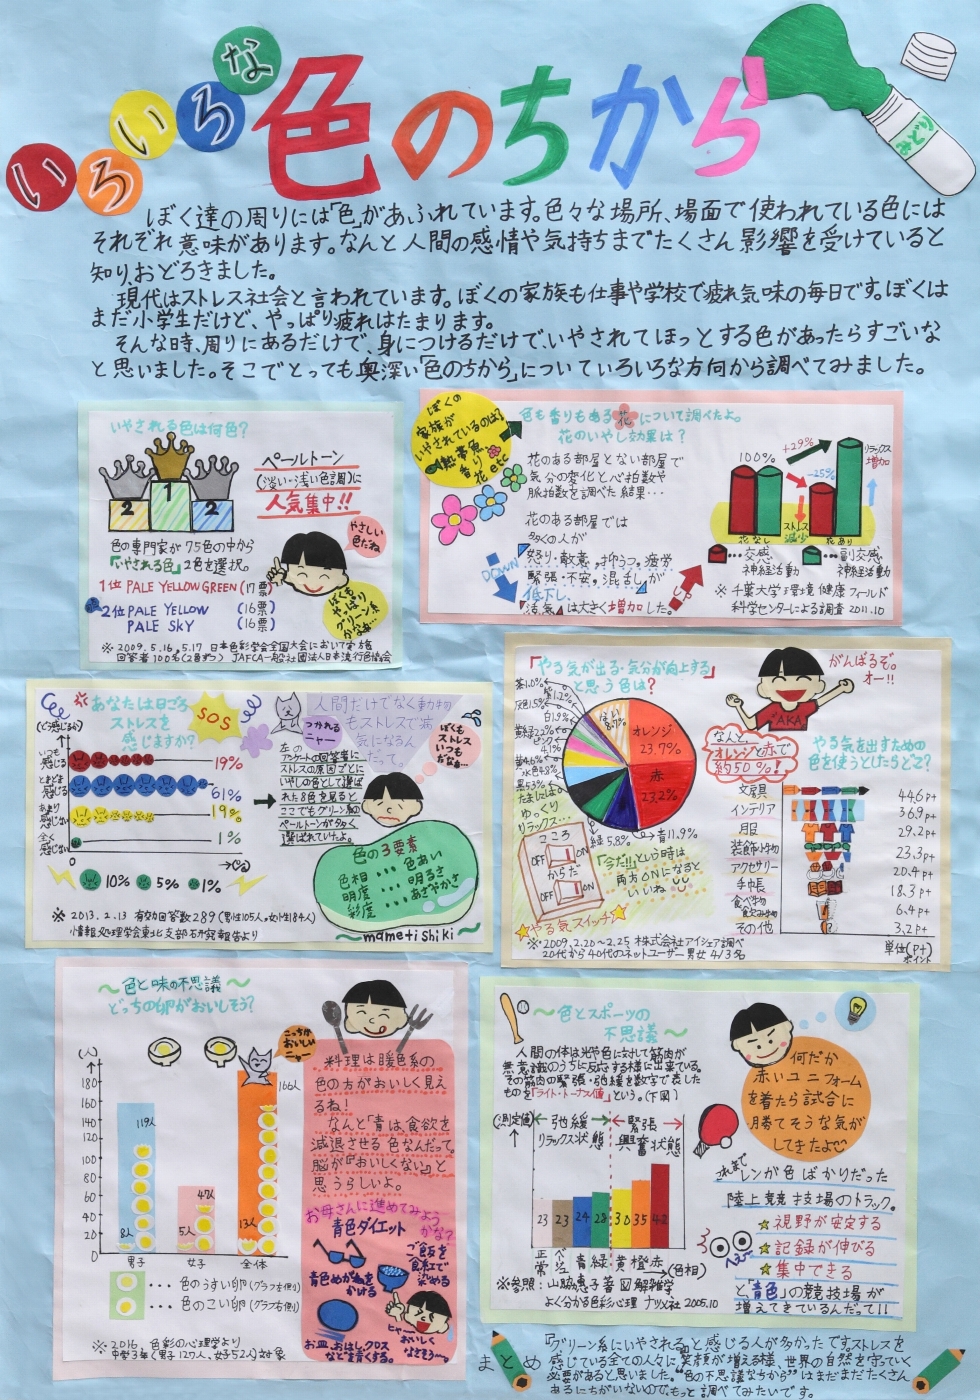 いろいろな
色のちから
ぼく達の周りには「色」があふれています。色々な場所、場面で使われている色には
それぞれ意味があります。なんと人間の感情や気持ちまでたくさん影響を受けていると
知り、おどろきました。
現代はストレス社会と言われています。ぼくの家族も仕事や学校で疲れ気味の毎日です。ぼくは
まだ小学生だけど、やっぱり疲れはたまります。
そんな時、周りにあるだけで、身につけるだけで、いやされてほっとする色があったらすごいな
と思いました。そこでとっても奥深い「色のちから」についていろいろな方向から調べてみました。
いやされる色は何色?
2
1
2
ペールトーン
(淡い・浅い色調)に
人気集中!!
色の専門家が75色の中から
「いやされる色」2色を選択。
やさしい
色だね
1位 PALE YELLOW GREEN (17票)
2位 PALE YELLOW (16票)
PALE SKY (16票)
※2009.5.16、5.17 日本色彩学会全国大会において実施
ぼくの
家族が
いやされているのは?
熱帯魚
香り
花 etc
色も香りもある花について調べたよ。
花のいやし効果は?
花のある部屋とない部屋で
気分の変化と心拍数や
脈拍数を調べた結果・・・
花のある部屋では
多くの人が
怒り・敵意、抑うつ、疲労
緊張・不安、混乱が
低下し、
活気は大きく増加した。
DOWN
UP
100%
+29%
-25%
リラックス
増加
ストレス
減少
花なし
花あり
・・・交感
神経活動
・・・副交感
神経活動
※千葉大学環境健康フィールド
科学センターによる調査 2011.10
あなたは日ごろ
ストレスを
感じますか?
SOS
(どう感じるか)
いつも
感じる
19%
ときどき
感じる
61%
あまり
感じない
19%
全く
感じない
1%
0
10%
5%
1%
※2013.2.13 有効回答数289(男性105人、女性184人)
情報処理学会東北支部研究報告より
つかれる
ニャー
人間だけでなく動物
もストレスで病
気になるん
だって。
ぼくも
ストレス
いつも
だなぁ…
左の
アンケートの回答者に
ストレスの原因ごとに
いやしの色として選ば
れた8色を見ると
ここでもグリーン系の
ペールトーンが多く
選ばれていたよ。
色の3要素
色相・・・色あい
明度・・・明るさ
彩度・・・あざやかさ
mametishiki
「やる気が出る・気分が向上する」
と思う色は?
がんばるぞ。
オー!!
AKA
茶1.0%
紫1.2%
灰色1.5%
白1.9%
黄緑2.2%
ピンク
4.1%
黄4.6%
水色4.8%
黒5.3%
緑5.8%
青11.9%
赤
23.2%
オレンジ
23.7%
ない
8.7%
なんと、
オレンジと赤で
約50%!
やる気を出すための
色を使うとしたらどこ?
文房具 44.6pt
インテリア 36.9pt
服 29.2pt
装飾小物 23.3pt
アクセサリー 20.4pt
手帳 18.3pt
食べ物
飲み物 6.4pt
その他 3.2pt
単位(pt)
ポイント
たまには
ゆっくり
リラックス・・・
こころ
OFF ON
からだ
OFF ON
やる気スイッチ
「今だ!!」という時は
両方ONになると
いいね
※2009.2.20~2.25 株式会社アイシェア調べ
20代から40代のネットユーザー男女413名
色と味の不思議
どっちの卵がおいしそう?
こっちが
おいしい
ニャー
(人)
180
160
140
120
100
80
60
40
20
0
8人
119人
5人
47人
13人
166人
男子
女子
全体
・・・色のうすい卵(グラフ左側)
・・・色のこい卵(グラフ右側)
※2016、色彩の心理学より
中学3年(男子127人、女子52人)対象
料理は暖色系の
色の方がおいしく見え
るね!
なんと「青」は食欲を
減退させる色なんだって。
脳が「おいしくない」と
思うらしいよ。
お母さんに進めてみよう
かな?
青色ダイエット
青色めがねを
かける
ご飯を
食紅で
染める
お皿、おはし、クロス
などを青くする。
ヒャー
おいしく
なさそう〜
色とスポーツの
不思議
人間の体は光や色に対して筋肉が
無意識のうちに反応する様に出来ている。
その筋肉の緊張・弛緩を数字で表した
ものを「ライト・トーナス値」という。(下図)
(測定値)
弛緩
リラックス状態
緊張
興奮状態
23
23
24
28
30
35
42
正常
ベージュ
青
緑
黄
橙
赤
(色相)
※参照:山脇惠子著 図解雑学
よく分かる色彩心理 ナツメ社 2005.10
何だか
赤いユニフォーム
を着たら試合に
勝てそうな気が
してきたよ
これまで
レンガ色ばかりだった
陸上競技場のトラック。
視野が安定する
記録が伸びる
集中できる
と、「青色」の競技場が
増えてきているんだって!!
まとめ
「グリーン系にいやされる」と感じる人が多かったです。ストレスを
感じている全ての人々に笑顔が増える様、世界の自然を守っていく
必要があると思いました。“色の不思議なちから”はまだまだたくさん
あるにちがいないので、もっと調べてみたいです。